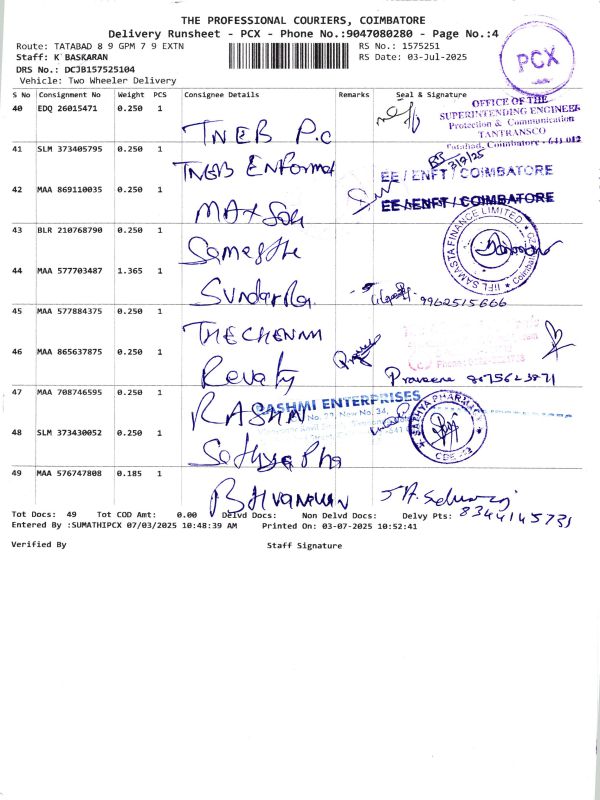 THE PROFESSIONAL COURIERS, COIMBATORE
Delivery Runsheet - PCX - Phone No.:9047080280 - Page No.:4
Route: TATABAD 8 9 GPM 7 9 EXTN RS No.: 1575251
Staff: K BASKARAN RS Date: 03-Jul-2025
DRS No.: DCJB157525104
Vehicle: Two Wheeler Delivery
PCX
S No Consignment No Weight PCS Consignee Details Remarks Seal & Signature
40 EDQ 26015471 0.250 1 TNEB P.C
OFFICE OF THE
SUPERINTENDING ENGINEER
Protection & Communication
TANTRANSCO
Tatabad, Coimbatore - 641 012
41 SLM 373405795 0.250 1 TNEB ENFormat
3/7/25
EE / ENFT / COIMBATORE
42 MAA 869110035 0.250 1
EE / ENFT / COIMBATORE
43 BLR 210768790 0.250 1
IIFL SAMASTA FINANCE LIMITED
44 MAA 577703487 1.365 1
9962515666
45 MAA 577884375 0.250 1 THECHENNAI
46 MAA 865637875 0.250 1 Revathy
Praveena 8075623871
47 MAA 708746595 0.250 1 RASHMI
RASHMI ENTERPRISES
New No. 34,
48 SLM 373430052 0.250 1 Sathya Pha
SATHYA PHARMACY
49 MAA 576747808 0.185 1
8344145731
Tot Docs: 49 Tot COD Amt: 0.00 Delvd Docs: Non Delvd Docs: Delvy Pts:
Entered By :SUMATHIPCX 07/03/2025 10:48:39 AM Printed On: 03-07-2025 10:52:41
Verified By Staff Signature